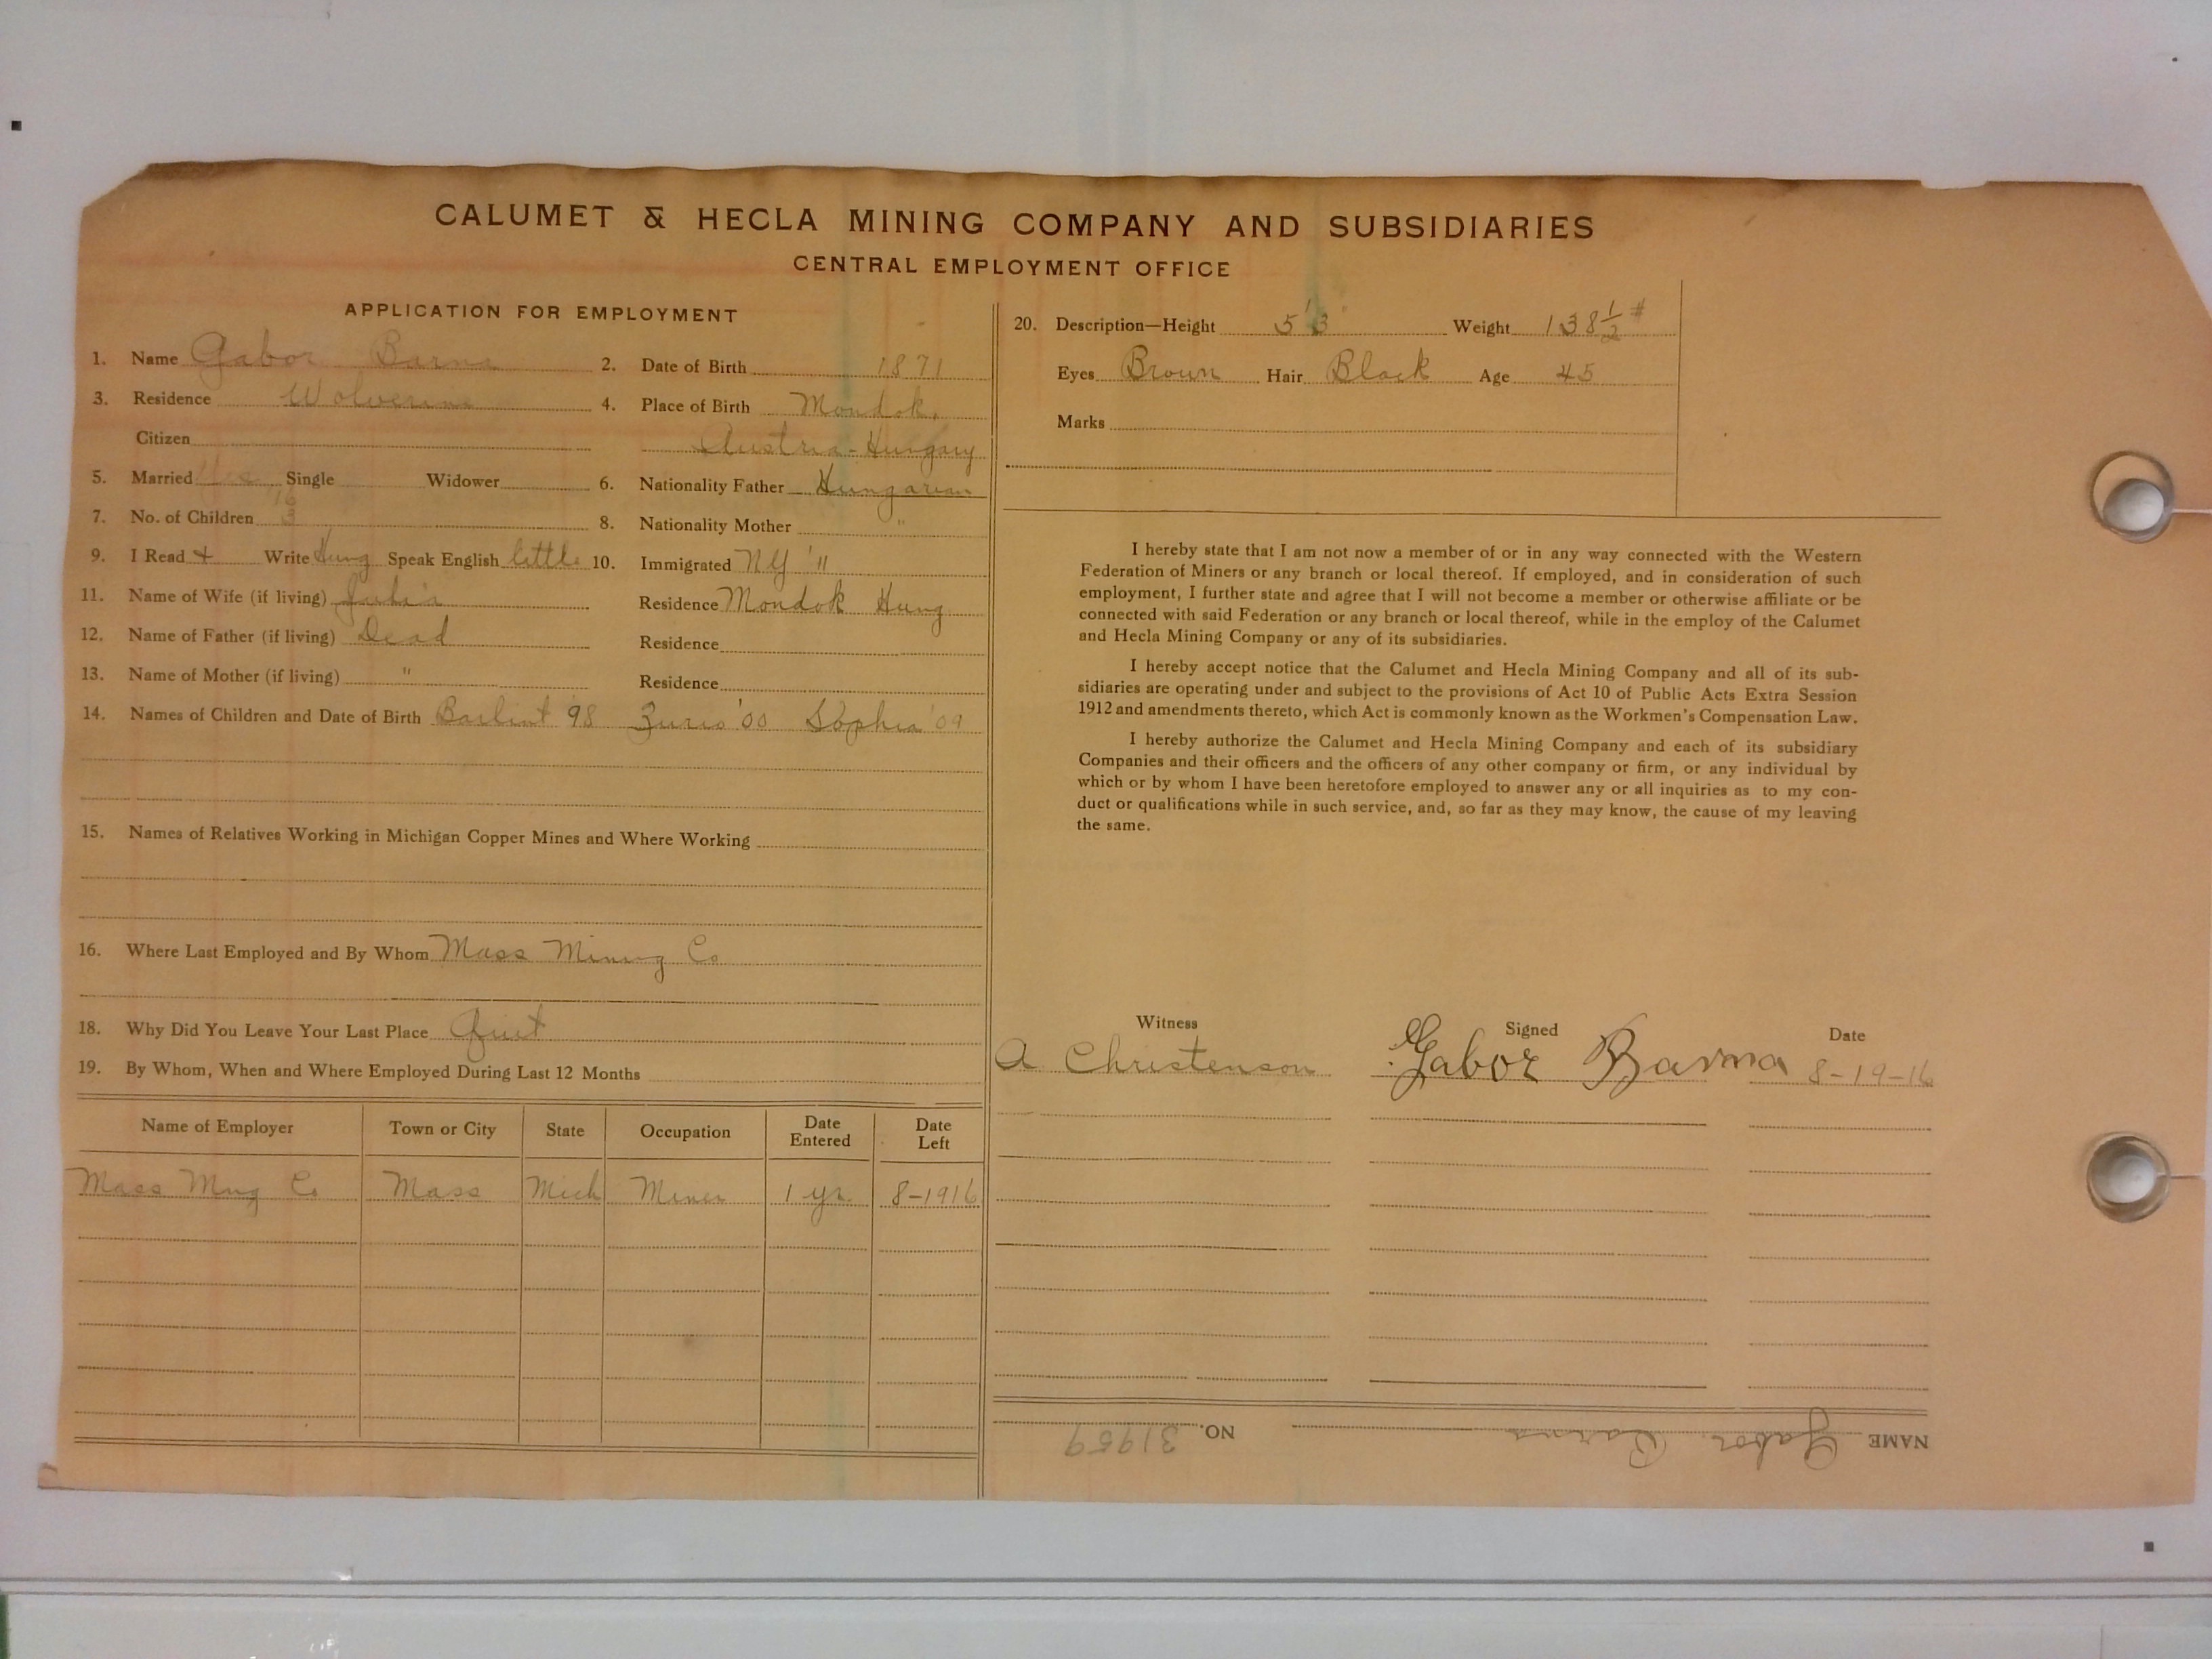 CALUMET & HECLA MINING COMPANY AND SUBSIDIARIES
CENTRAL EMPLOYMENT OFFICE
APPLICATION FOR EMPLOYMENT
1. Name Gabor Barna 2. Date of Birth 1871
3. Residence Wolverine 4. Place of Birth Mondok,
Citizen Austria-Hungary
5. Married Yes Single Widower 6. Nationality Father Hungarian
'16
7. No. of Children 3 8. Nationality Mother "
9. I Read + Write Hung Speak English little 10. Immigrated NY '11
11. Name of Wife (if living) Julia Residence Mondok Hung
12. Name of Father (if living) Dead Residence
13. Name of Mother (if living) " Residence
14. Names of Children and Date of Birth '98 '00 Sophia '09
15. Names of Relatives Working in Michigan Copper Mines and Where Working
16. Where Last Employed and By Whom Mass Mining Co
18. Why Did You Leave Your Last Place Quit
19. By Whom, When and Where Employed During Last 12 Months
Name of Employer Town or City State Occupation Date Entered Date Left
Mass Mng Co Mass Mich Miner 1 yr. 8-1916
20. Description—Height 5'3" Weight 138½#
Eyes Brown Hair Black Age 45
Marks
I hereby state that I am not now a member of or in any way connected with the Western
Federation of Miners or any branch or local thereof. If employed, and in consideration of such
employment, I further state and agree that I will not become a member or otherwise affiliate or be
connected with said Federation or any branch or local thereof, while in the employ of the Calumet
and Hecla Mining Company or any of its subsidiaries.
I hereby accept notice that the Calumet and Hecla Mining Company and all of its sub-
sidiaries are operating under and subject to the provisions of Act 10 of Public Acts Extra Session
1912 and amendments thereto, which Act is commonly known as the Workmen's Compensation Law.
I hereby authorize the Calumet and Hecla Mining Company and each of its subsidiary
Companies and their officers and the officers of any other company or firm, or any individual by
which or by whom I have been heretofore employed to answer any or all inquiries as to my con-
duct or qualifications while in such service, and, so far as they may know, the cause of my leaving
the same.
Witness Signed Date
A Christenson Gabor Barna 8-19-16
NAME Gabor Barna NO. 31959